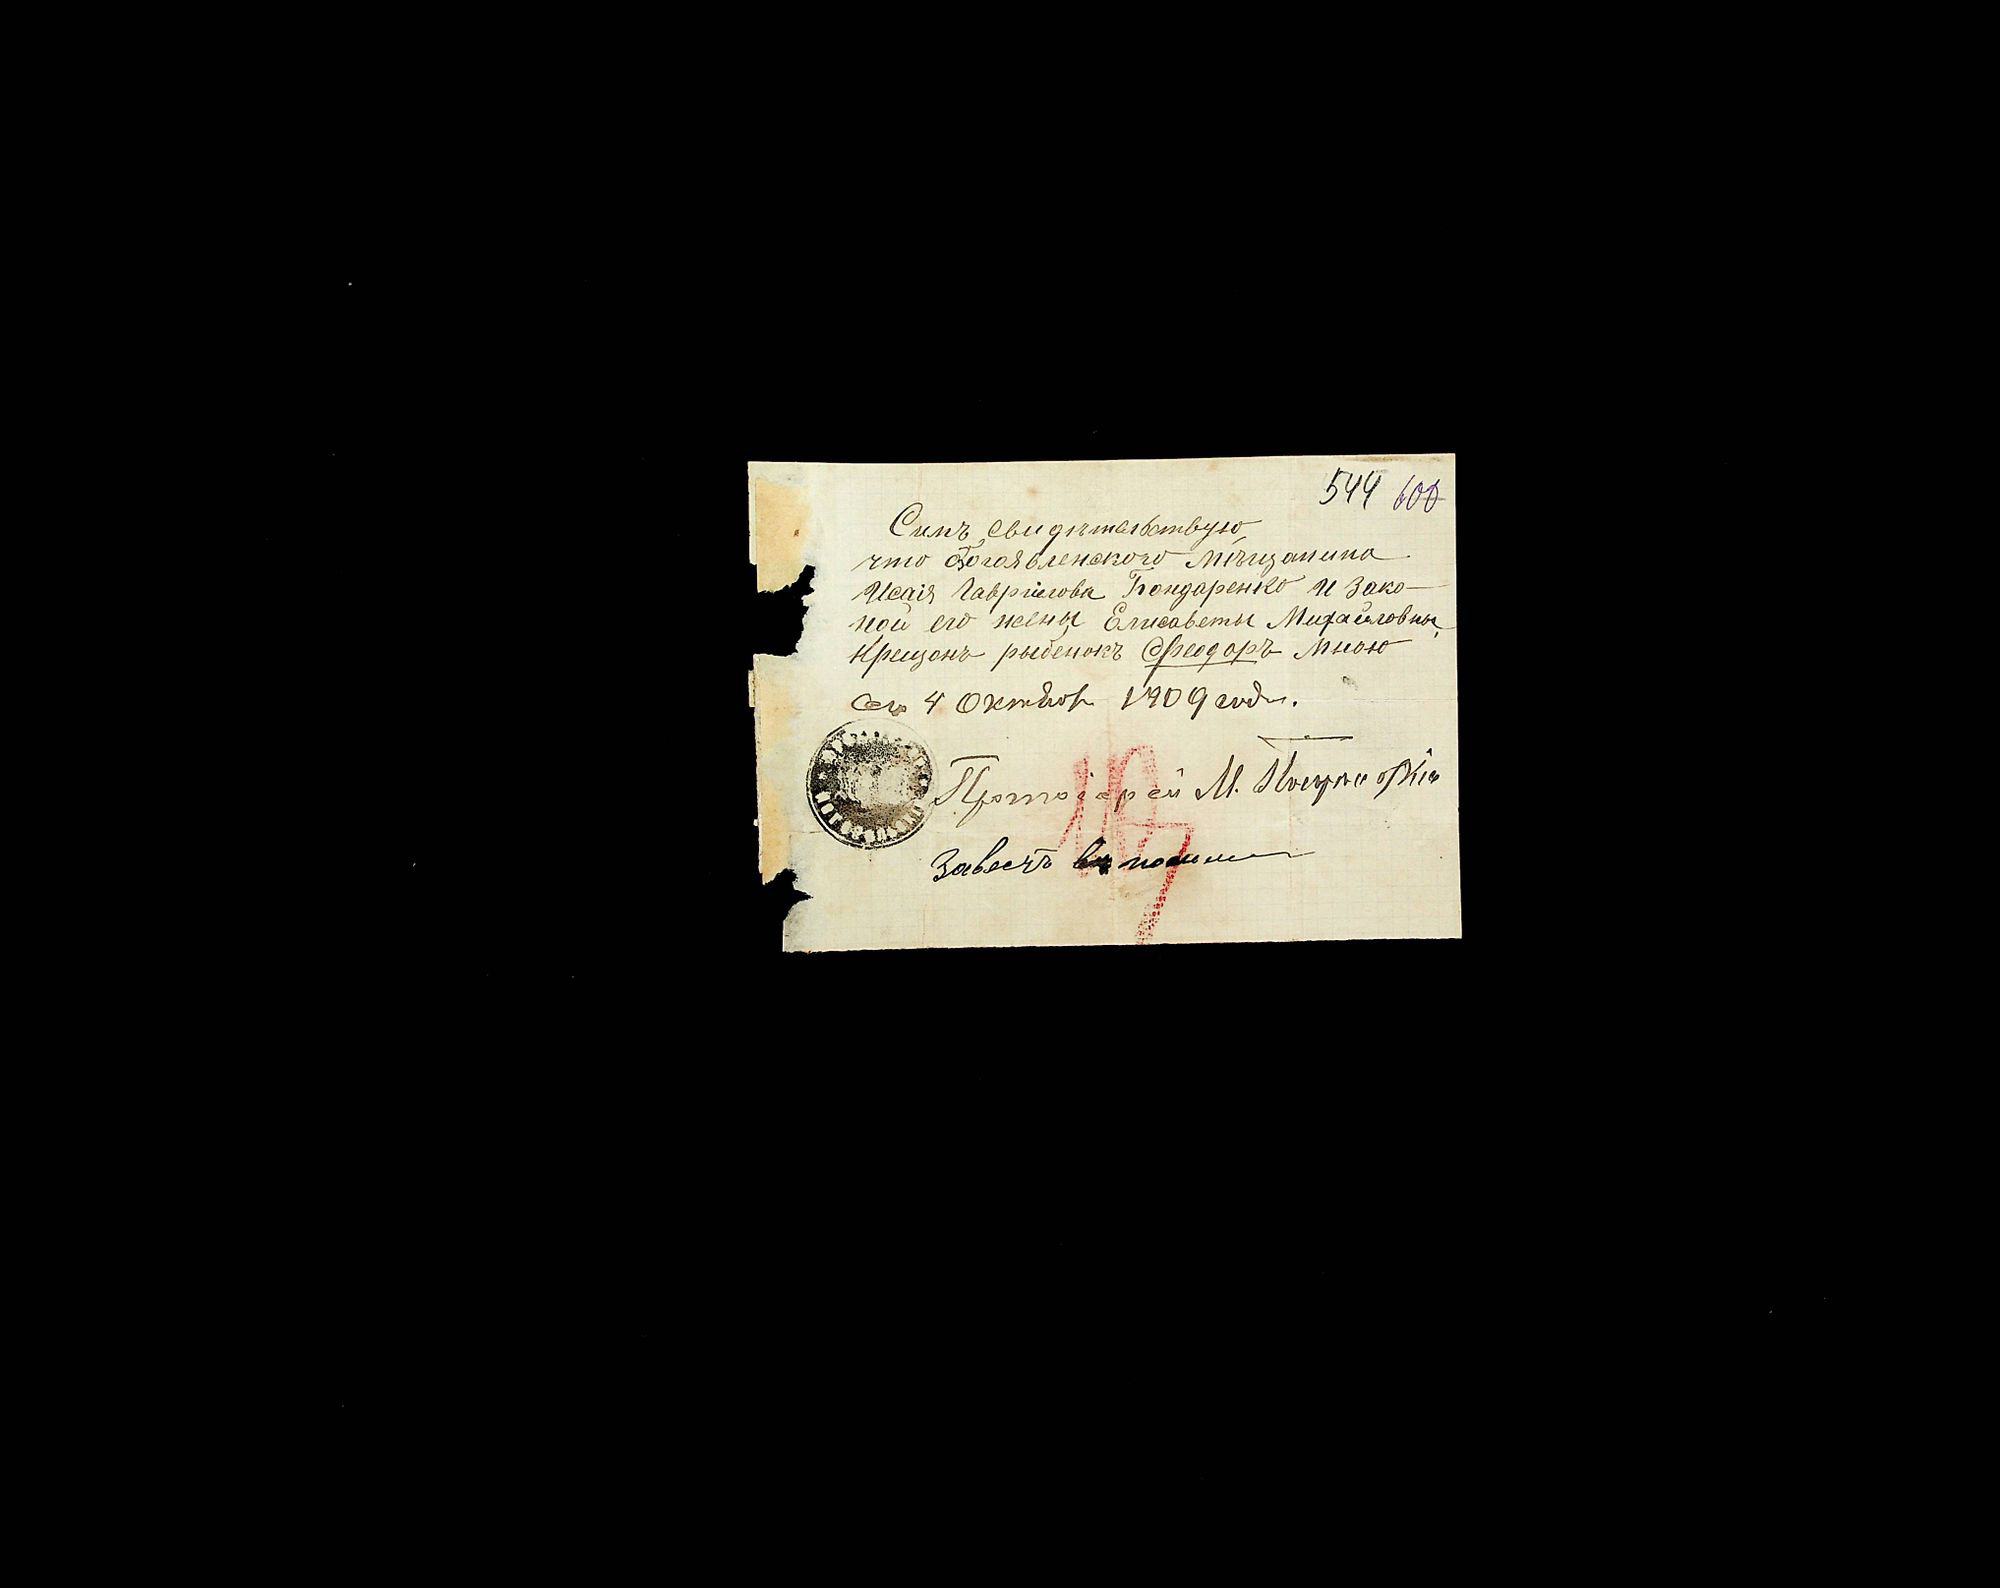 544 600
Симъ свидѣтельствую
что Богоявленского мѣщанина
Исаія Гаврилова Бондаренко и зако-
ной его жены Елисаветы Михайловны
Крещенъ рыбенокъ Феодоръ Мною
4 Октября 1909 года.
Протоіерей М.